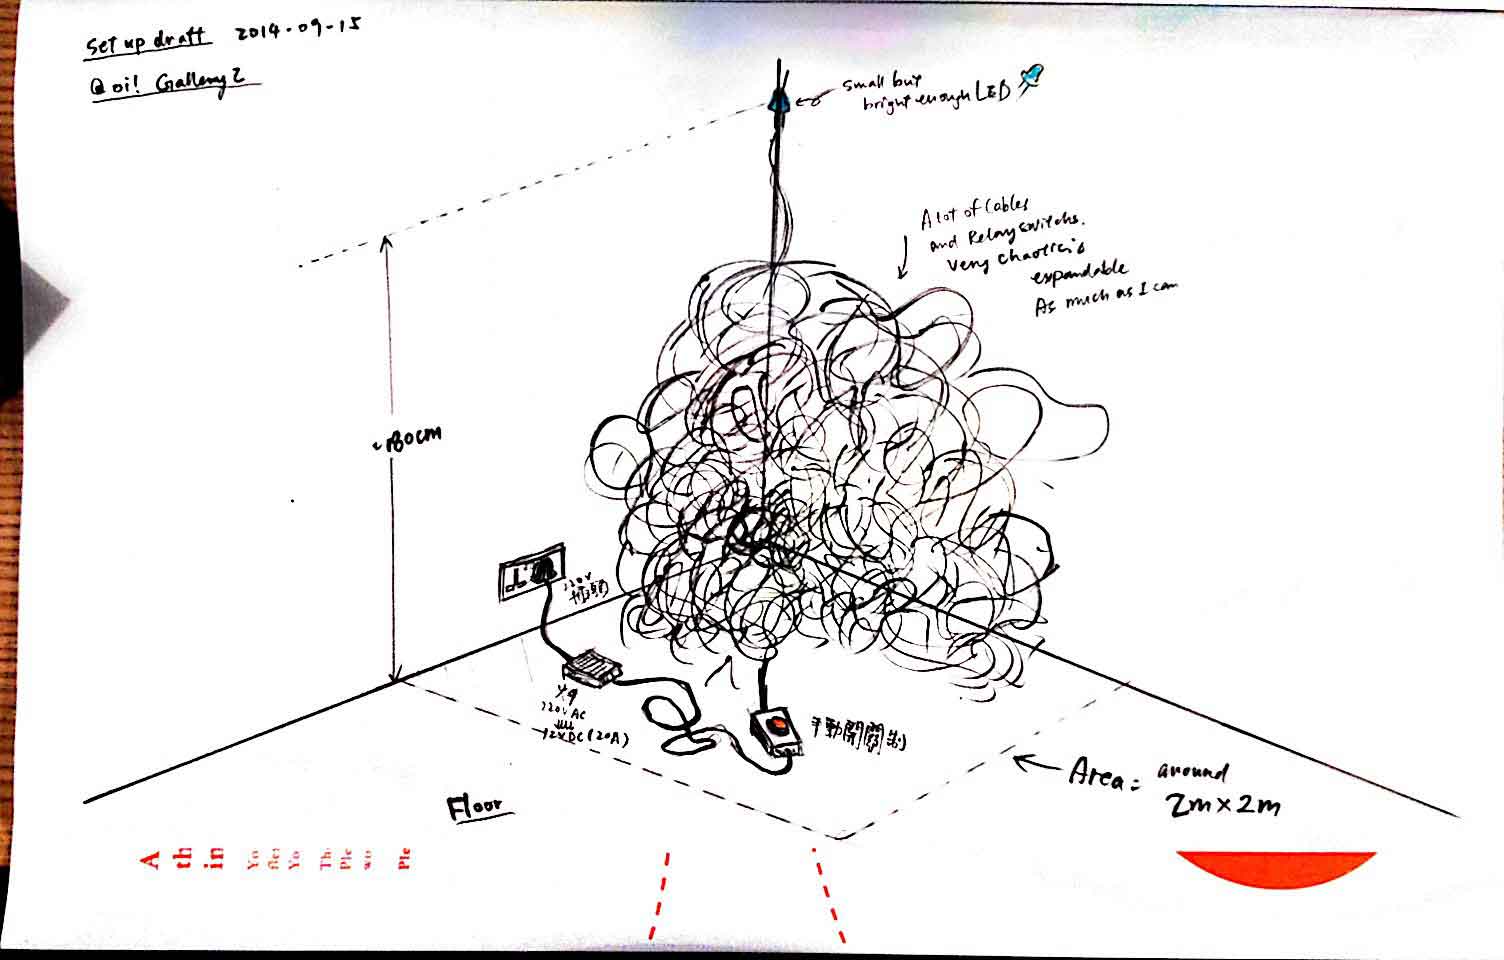 set up draft 2014-09-15
@ oi! Gallery 2
small but
bright enough LED
A lot of Cables
and Relay switchs.
Very chaotic is
expandable
As much as I can
220V
火牛
220V AC
12V DC (20A)
手動開關制
Area = around
2m×2m
Floor
A
th
in
Yo
Yo
Th
Ple
wo
Ple